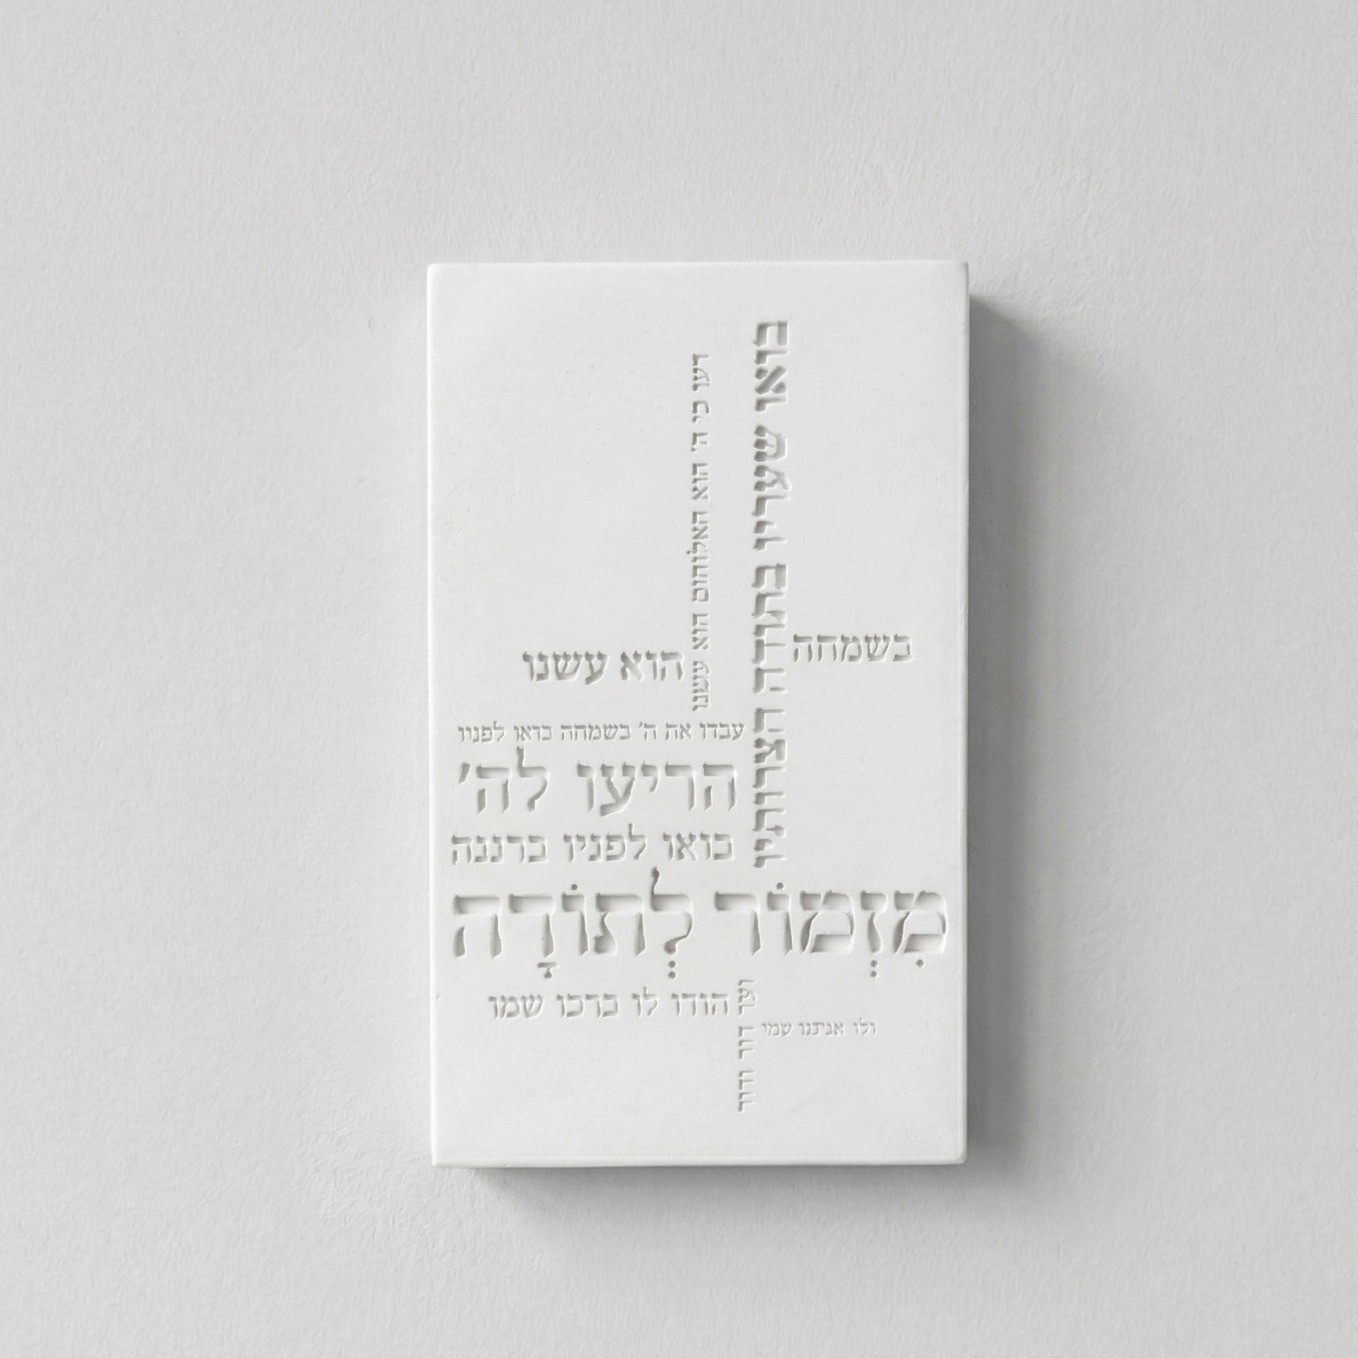 בואו שעריו בתודה חצרותיו
דעו כי ה' הוא האלוהים הוא עשנו
בשמחה
הוא עשנו
עבדו את ה' בשמחה בואו לפניו
הריעו לה'
בואו לפניו ברננה
מִזְמוֹר לְתוֹדָה
הודו לו ברכו שמו
ועד דור ודור
ולו אנחנו